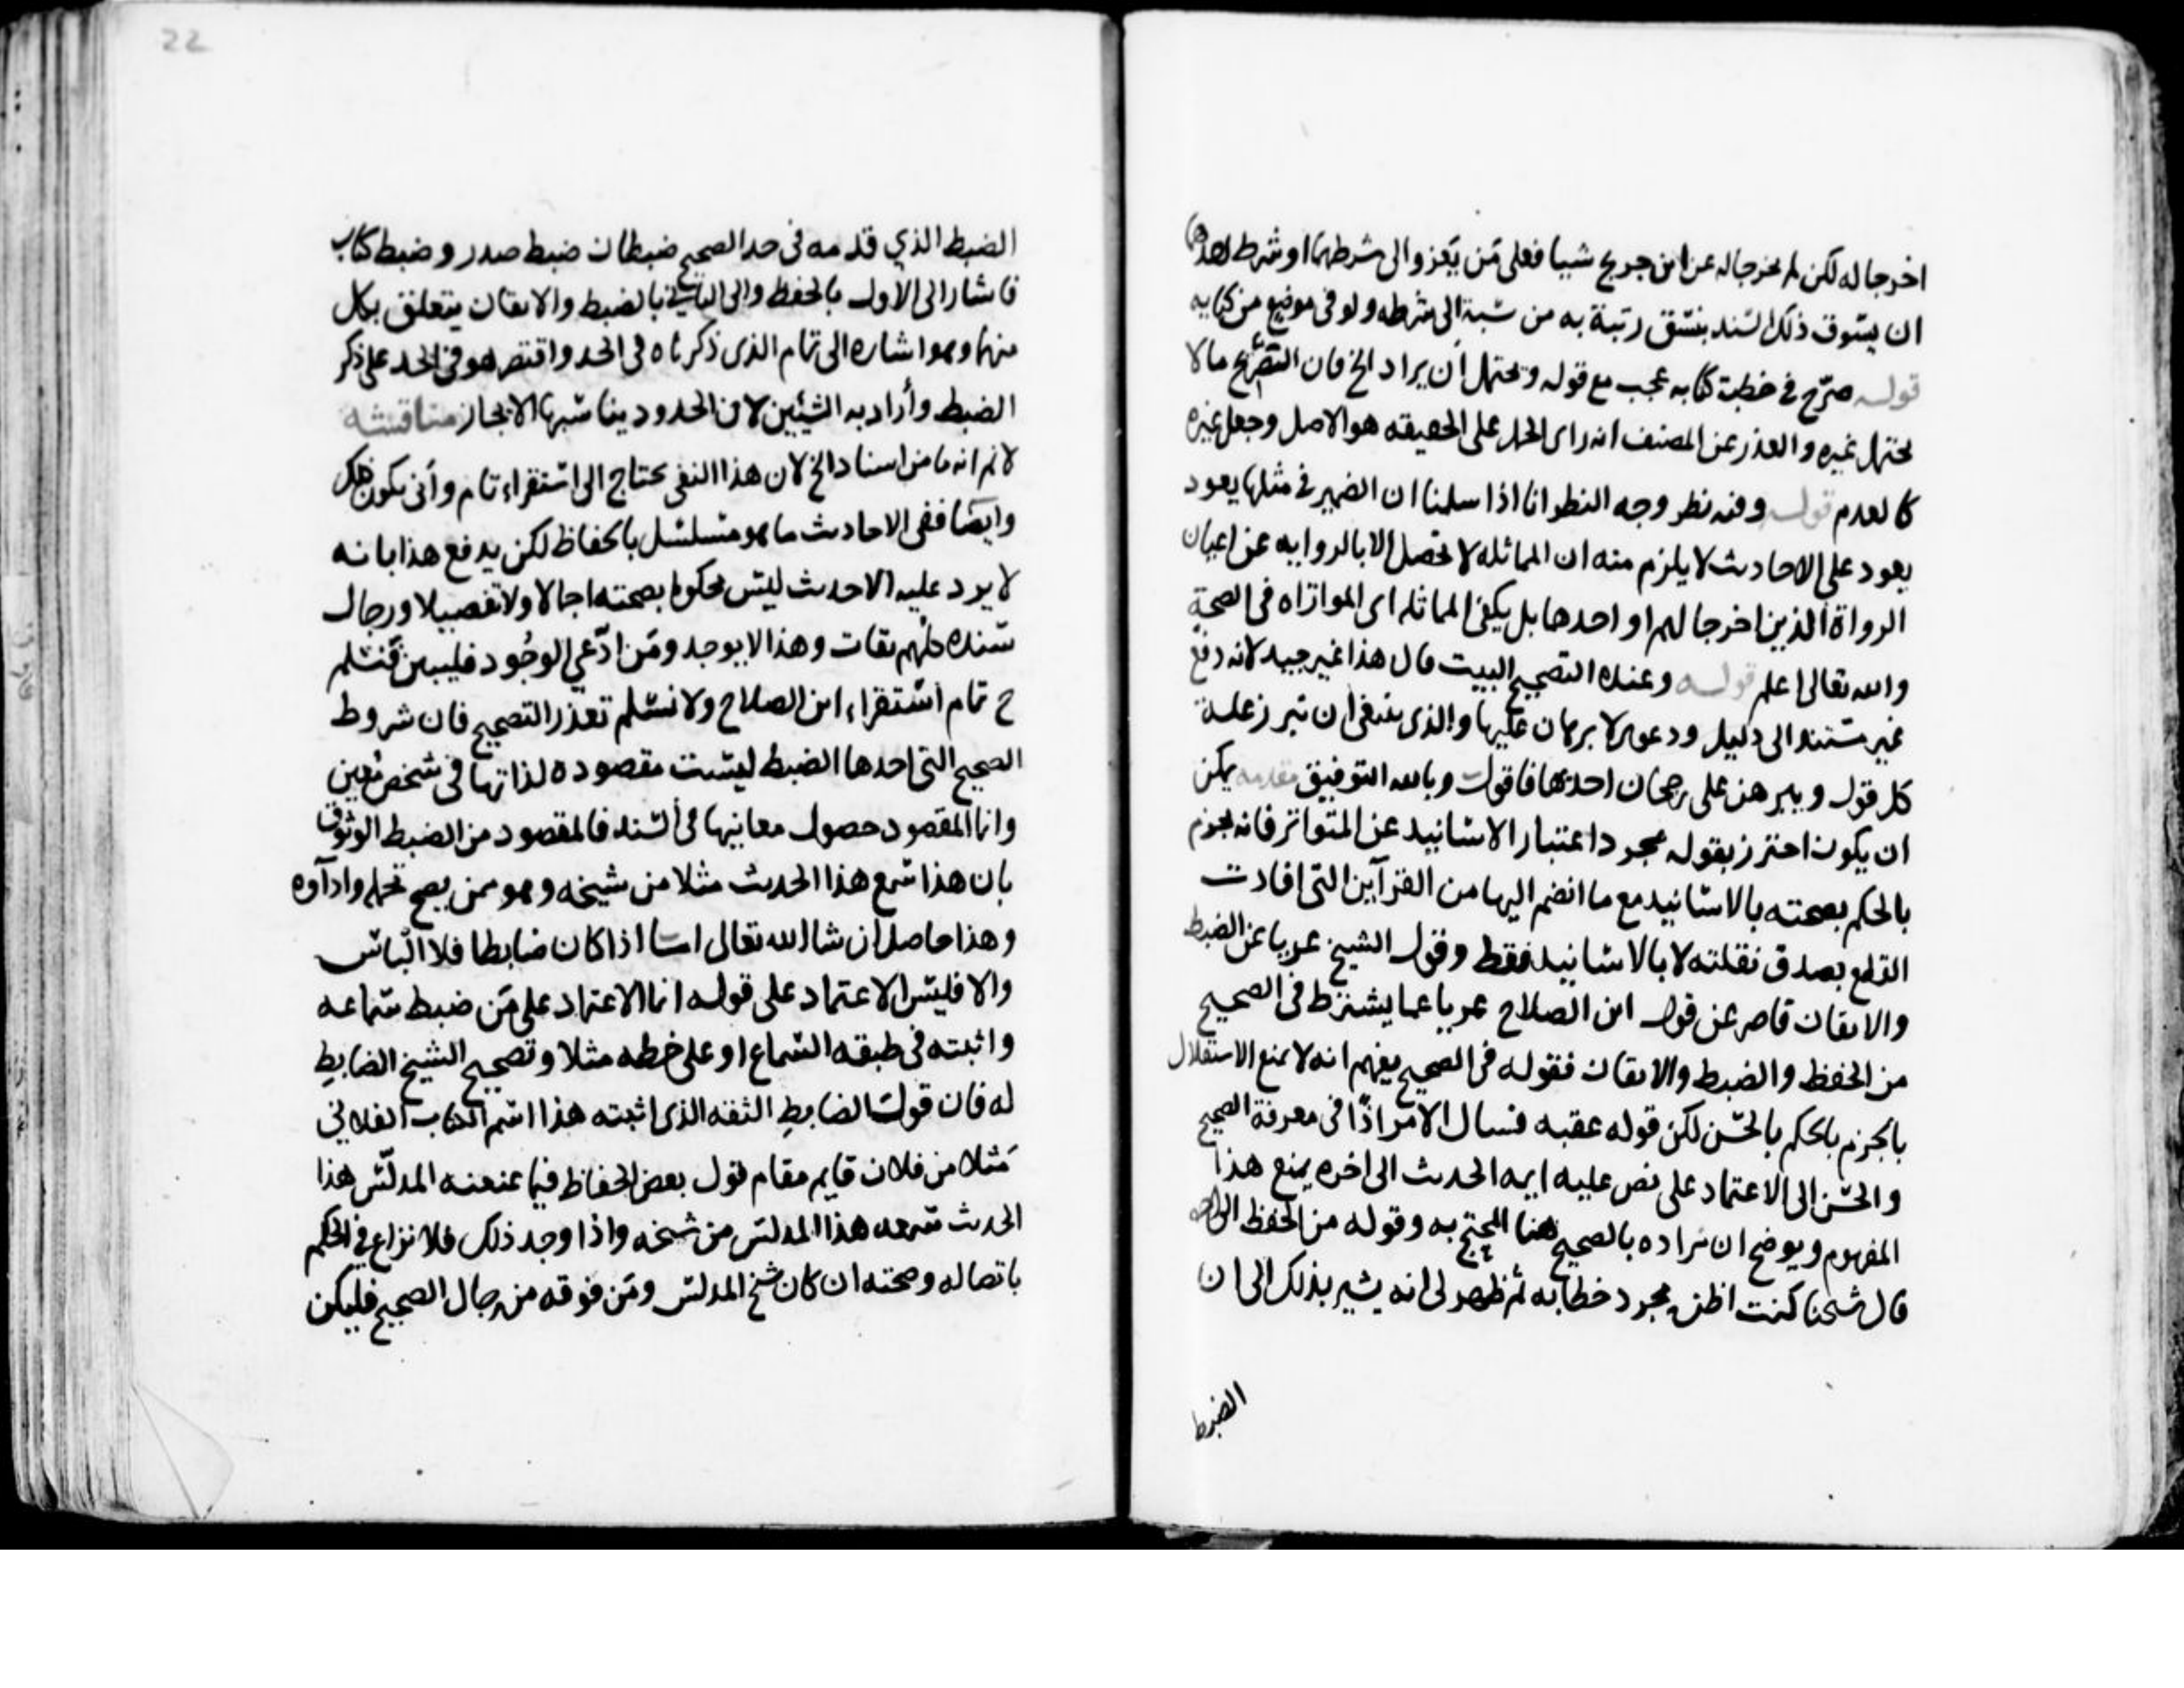 اخرجا له لكن لم يخرجا له عن ابن جريج شيا فعلى مَن يَعزوا الى شرطهما او شرط احدهما
ان يسوق ذلك السند بنسق رتبة به من نسبة الى شرطه ولو فى موضع من كتابه
قوله صرّح في خطبت كتابه عجب مع قوله ويحتمل ان يراد الخ فان التصريح ما لا
يحتمل غيره والعذر عن المصنف انه راى الحمل على الحقيقه هو الاصل وجعل غيره
كالعدم قوله وفيه نظر وجه النظر انا اذا سلمنا ان الضمير في مثلها يعود
يعود على الاحاديث لا يلزم منه ان المماثله لا تحصل الا بالروايه عن اعيان
الرواة الذين اخرجا لهم او احدهما بل يكفى المماثله اى الموازاه فى الصحة
والله تعالى اعلم قوله وعنده التصحيح البيت قال هذا غير جيد لانه دفع
غير مستند الى دليل ودعوى لا برهان عليها والذى ينبغى ان تبرز علة
كل قول ويبرهن على رجحان احدها فاقول وبالله التوفيق مقدمه يمكن
ان يكون احترز بقوله مجرد اعتبار الاسانيد عن المتواتر فانه يجزم
بالحكم بصحته بالاسانيد مع ما انضم اليها من القرآين التى افادت
القطع بصدق نقلته لا بالاسانيد فقط وقول الشيخ عريا عن الضبط
والاتقان قاصر عن قول ابن الصلاح عريا عما يشترط فى الصحيح
من الحفظ والضبط والاتقان فقوله فى الصحيح يفهم انه لا يمنع الاستقلال
بالجزم بالحكم بالحسن لكن قوله عقبه فسال الامر اذًا فى معرفة الصحيح
والحسن الى الاعتماد على نص عليه ايمه الحديث الى اخره يمنع هذا
المفهوم ويوضح ان مراده بالصحيح هنا المحتج به وقوله من الحفظ الى اخره
قال شيخنا كنت اظن مجرد خطابه ثم ظهر لى انه يشير بذلك الى ان
الضبط
22
الضبط الذي قدمه فى حد الصحيح ضبطان ضبط صدر وضبط كتاب
فاشار الى الاول بالحفظ والى الثاني بالضبط والاتقان يتعلق بكل
منهما وهو اشاره الى تمام الذى ذكرناه فى الحد واقتصر هو في الحد على ذكر
الضبط وأراد به الشيئين لان الحدود يناسبها الايجاز مناقشه
لانم انه ما من اسناد الخ لان هذا النفى يحتاج الى استقراء تام وأنى يكون ذلك
وايضا ففى الاحاديث ما هو مسلسل بالحفاظ لكن يدفع هذا بانه
لا يرد عليه الا حديث ليس محكوما بصحته اجمالا ولا تفصيلا ورجال
سنده كلهم ثقات وهذا لا يوجد ومَن ادّعي الوجُود فليبين فنسلم
ح تمام استقراء ابن الصلاح ولا نسلم تعذر التصحيح فان شروط
الصحيح التى احدها الضبط ليست مقصوده لذاتها فى شخص معين
وانما المقصود حصول معانيها فى السند فالمقصود من الضبط الوثوق
بان هذا سمع هذا الحديث مثلا من شيخه وهو ممن يصح تحمله واداوه
وهذا حاصل ان شا الله تعالى اما اذا كان ضابطا فلا التباس
والا فليس الاعتماد على قوله انما الاعتماد على مَن ضبط سماعه
واثبته فى طبقه السماع او على خطه مثلا وتصحيح الشيخ الضابط
له فان قول الضابط الثقه الذى اثبته هذا اسم الكتاب الفلاني
مَثلا من فلان قايم مقام قول بعض الحفاظ فيما عنعنه المدلّس هذا
الحديث سمعه هذا المدلس من شيخه واذا وجد ذلك فلا نزاع في الحكم
باتصاله وصحته ان كان شيخ المدلس ومَن فوقه من رجال الصحيح فليكن